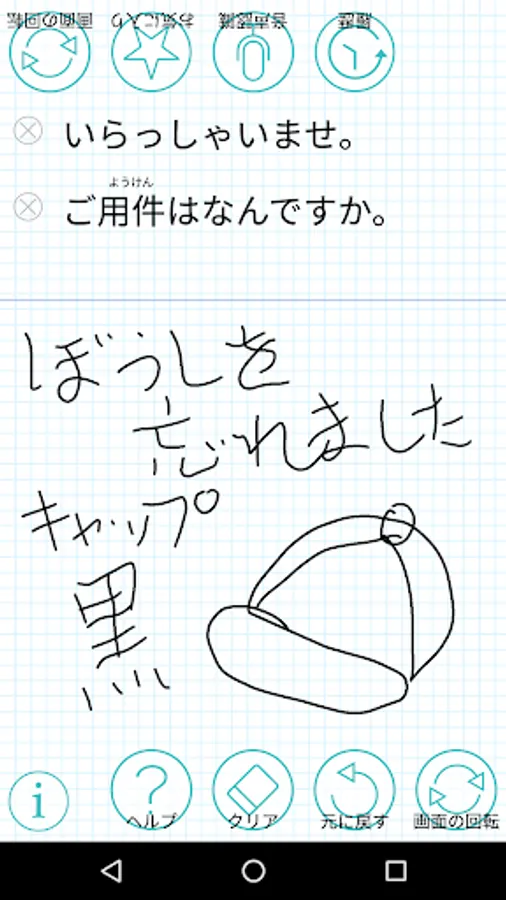 画面の回転 お気に入り 音声認識 履歴
いらっしゃいませ。
ようけん
ご用件はなんですか。
ぼうしを
忘れました
キャップ
黒
i ? ヘルプ クリア 元に戻す 画面の回転